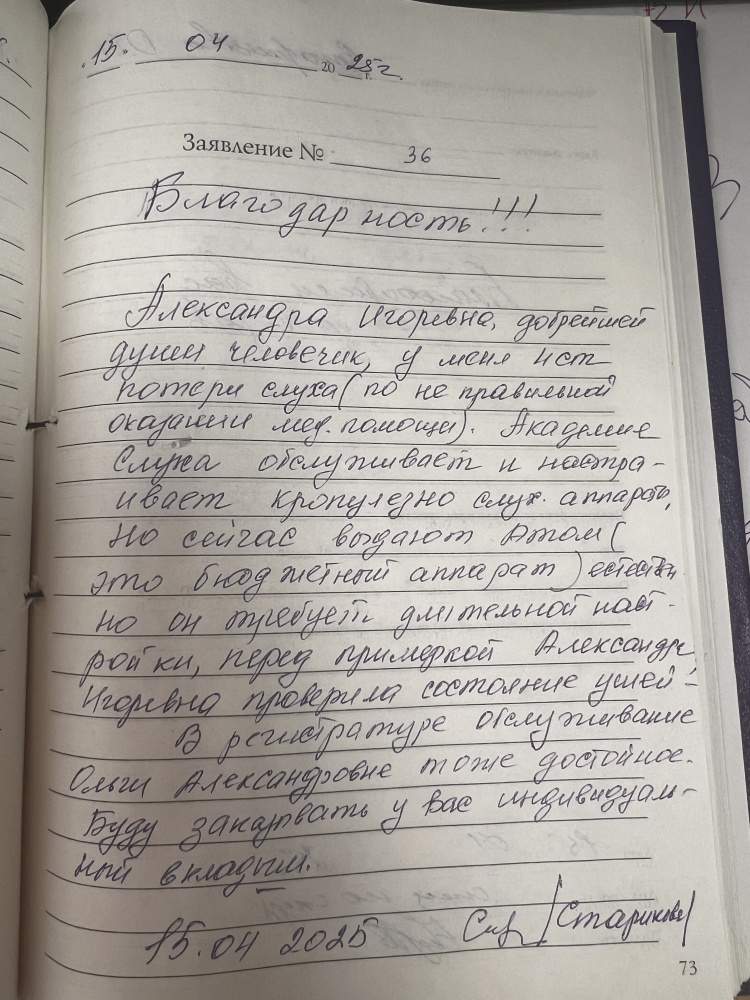 15. 04 2025 г.
Заявление № 36
Благодарность!!!
Александра Игоревна, добрейшей
души человечик, у меня ист
потери слуха (по не правильной
оказании мед. помощи). Академие
Слуха обслуживает и настра-
ивает кропулезно слух. аппараты,
Но сейчас выдают Атом (
это бюджетный аппарат) естестве
но он требует длительной наст-
ройки, перед примеркой Александра
Игоревна проверила состояние ушей!
В регистратуре обслуживание
Ольги Александровне тоже достойное.
Буду заказывать у вас индивидуаль-
ный вкладыш.
15.04 2025 /Старикова/
73